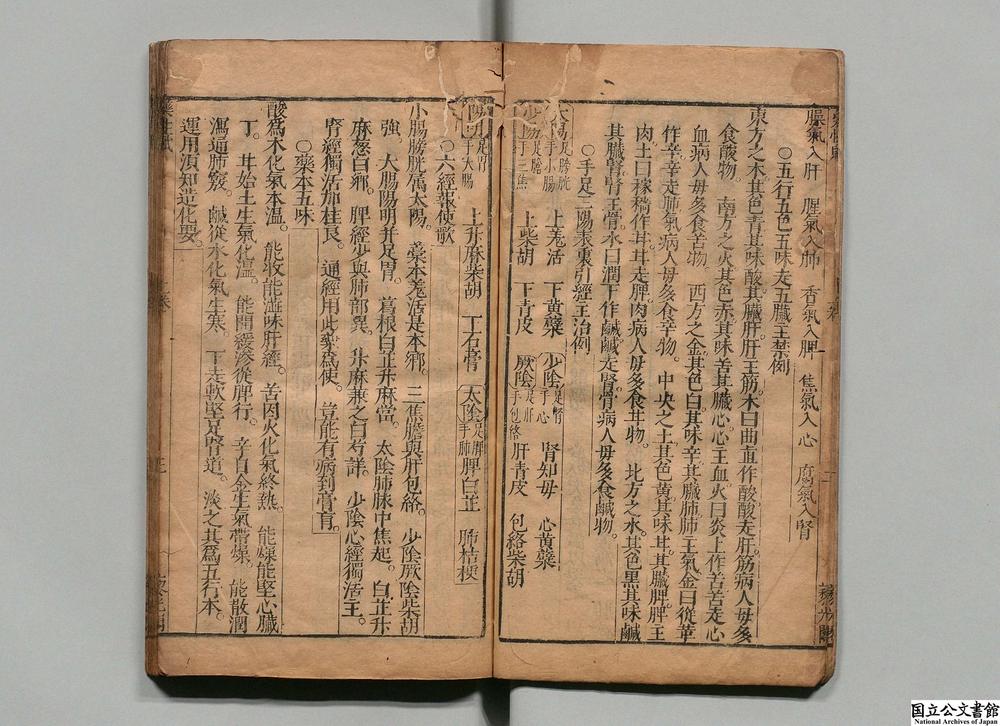 臊氣入肝 腥氣入肺 香氣入脾 焦氣入心 腐氣入腎
○五行五色五味走五臟主禁例
東方之木其色青其味酸其臟肝肝主筋木曰曲直作酸酸走肝筋病人毋多
食酸物。 南方之火其色赤其味苦其臟心心主血火曰炎上作苦苦走心
血病人毋多食苦物。 西方之金其色白其味辛其臟肺肺主氣金曰從革
作辛辛走肺氣病人毋多食辛物。 中央之土其色黃其味甘其臟脾脾主
肉土曰稼穡作甘甘走脾肉病人毋多食甘物。 北方之水其色黑其味鹹
其臟腎腎主骨水曰潤下作鹹鹹走腎骨病人毋多食鹹物。
○手足三陽表裏引經主治例
太陽足膀胱手小腸 上羌活 下黃蘗 少陰足腎手心 腎知母 心黃蘗
少陽足膽手三焦 上柴胡 下青皮 厥陰足肝手包絡 肝青皮 包絡柴胡
陽明足胃手大腸 上升麻柴胡 下石膏 太陰足脾手肺 脾白芷 肺桔梗
○六經報使歌
小腸膀胱屬太陽。 藁本羌活是本鄉。 三焦膽與肝包絡。 少陽厥陰柴胡
強。 大腸陽明并足胃。 葛根白芷升麻當。 太陰肺脉中焦起。 白芷升
麻葱白鄉。 脾經少與肺部異。 升麻兼之白芍詳。 少陰心經獨活主。
腎經獨活加桂良。 通經用此藥爲使。 豈能有病到膏肓。
○藥本五味
酸爲木化氣本溫。 能收能澁味肝經。 苦因火化氣終熱。 能燥能堅心臟
丁。 甘始土生氣化溫。 能開緩滲從脾行。 辛自金生氣帶燥。 能散潤
瀉通肺竅。 鹹從水化氣生寒。 下走軟堅足腎道。 淡之其爲五行本。
運用須知造化要。
国立公文書館
National Archives of Japan